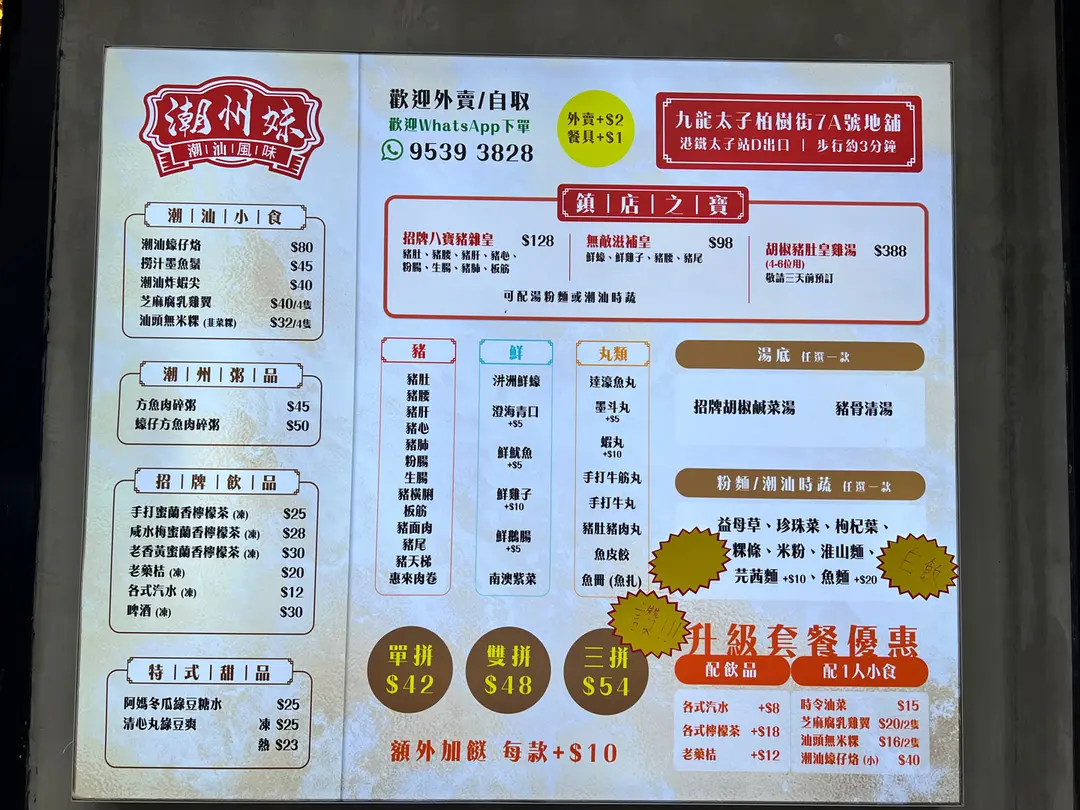 潮州妹
潮汕風味
歡迎外賣/自取
歡迎WhatsApp下單
9539 3828
外賣+$2
餐具+$1
九龍太子柏樹街7A號地舖
港鐵太子站D出口 | 步行約3分鐘
潮|汕|小|食
潮汕蠔仔烙 $80
撈汁墨魚鬚 $45
潮汕炸蝦尖 $40
芝麻腐乳雞翼 $40/4隻
汕頭無米粿 (韮菜粿) $32/4隻
潮|州|粥|品
方魚肉碎粥 $45
蠔仔方魚肉碎粥 $50
招|牌|飲|品
手打蜜蘭香檸檬茶 (凍) $25
咸水梅蜜蘭香檸檬茶 (凍) $28
老香黃蜜蘭香檸檬茶 (凍) $30
老藥桔 (凍) $20
各式汽水 (凍) $12
啤酒 (凍) $30
特|式|甜|品
阿媽冬瓜綠豆糖水 $25
清心丸綠豆爽 凍 $25
熱 $23
鎮|店|之|寶
招牌八寶豬雜皇 $128
豬肚、豬腰、豬肝、豬心、
粉腸、生腸、豬肺、板筋
無敵滋補皇 $98
鮮蠔、鮮雞子、豬腰、豬尾
胡椒豬肚皇雞湯 $388
(4-6位用)
敬請三天前預訂
可配湯粉麵或潮汕時蔬
豬
豬肚
豬腰
豬肝
豬心
豬肺
粉腸
生腸
豬橫脷
板筋
豬面肉
豬尾
豬天梯
惠來肉卷
鮮
汫洲鮮蠔
澄海青口
+$5
鮮魷魚
+$5
鮮雞子
+$10
鮮鵝腸
+$5
南澳紫菜
丸類
達濠魚丸
墨斗丸
+$5
蝦丸
+$10
手打牛筋丸
手打牛丸
豬肚豬肉丸
魚皮餃
魚冊 (魚扎)
湯底 任選一款
招牌胡椒鹹菜湯 豬骨清湯
粉麵/潮汕時蔬 任選一款
益母草、珍珠菜、枸杞葉、
粿條、米粉、淮山麵、
芫茜麵 +$10、魚麵 +$20
單拼
$42
雙拼
$48
三拼
$54
額外加餸 每款+$10
升級套餐優惠
配飲品
各式汽水 +$8
各式檸檬茶 +$18
老藥桔 +$12
配1人小食
時令油菜 $15
芝麻腐乳雞翼 $20/2隻
汕頭無米粿 $16/2隻
潮汕蠔仔烙 (小) $40